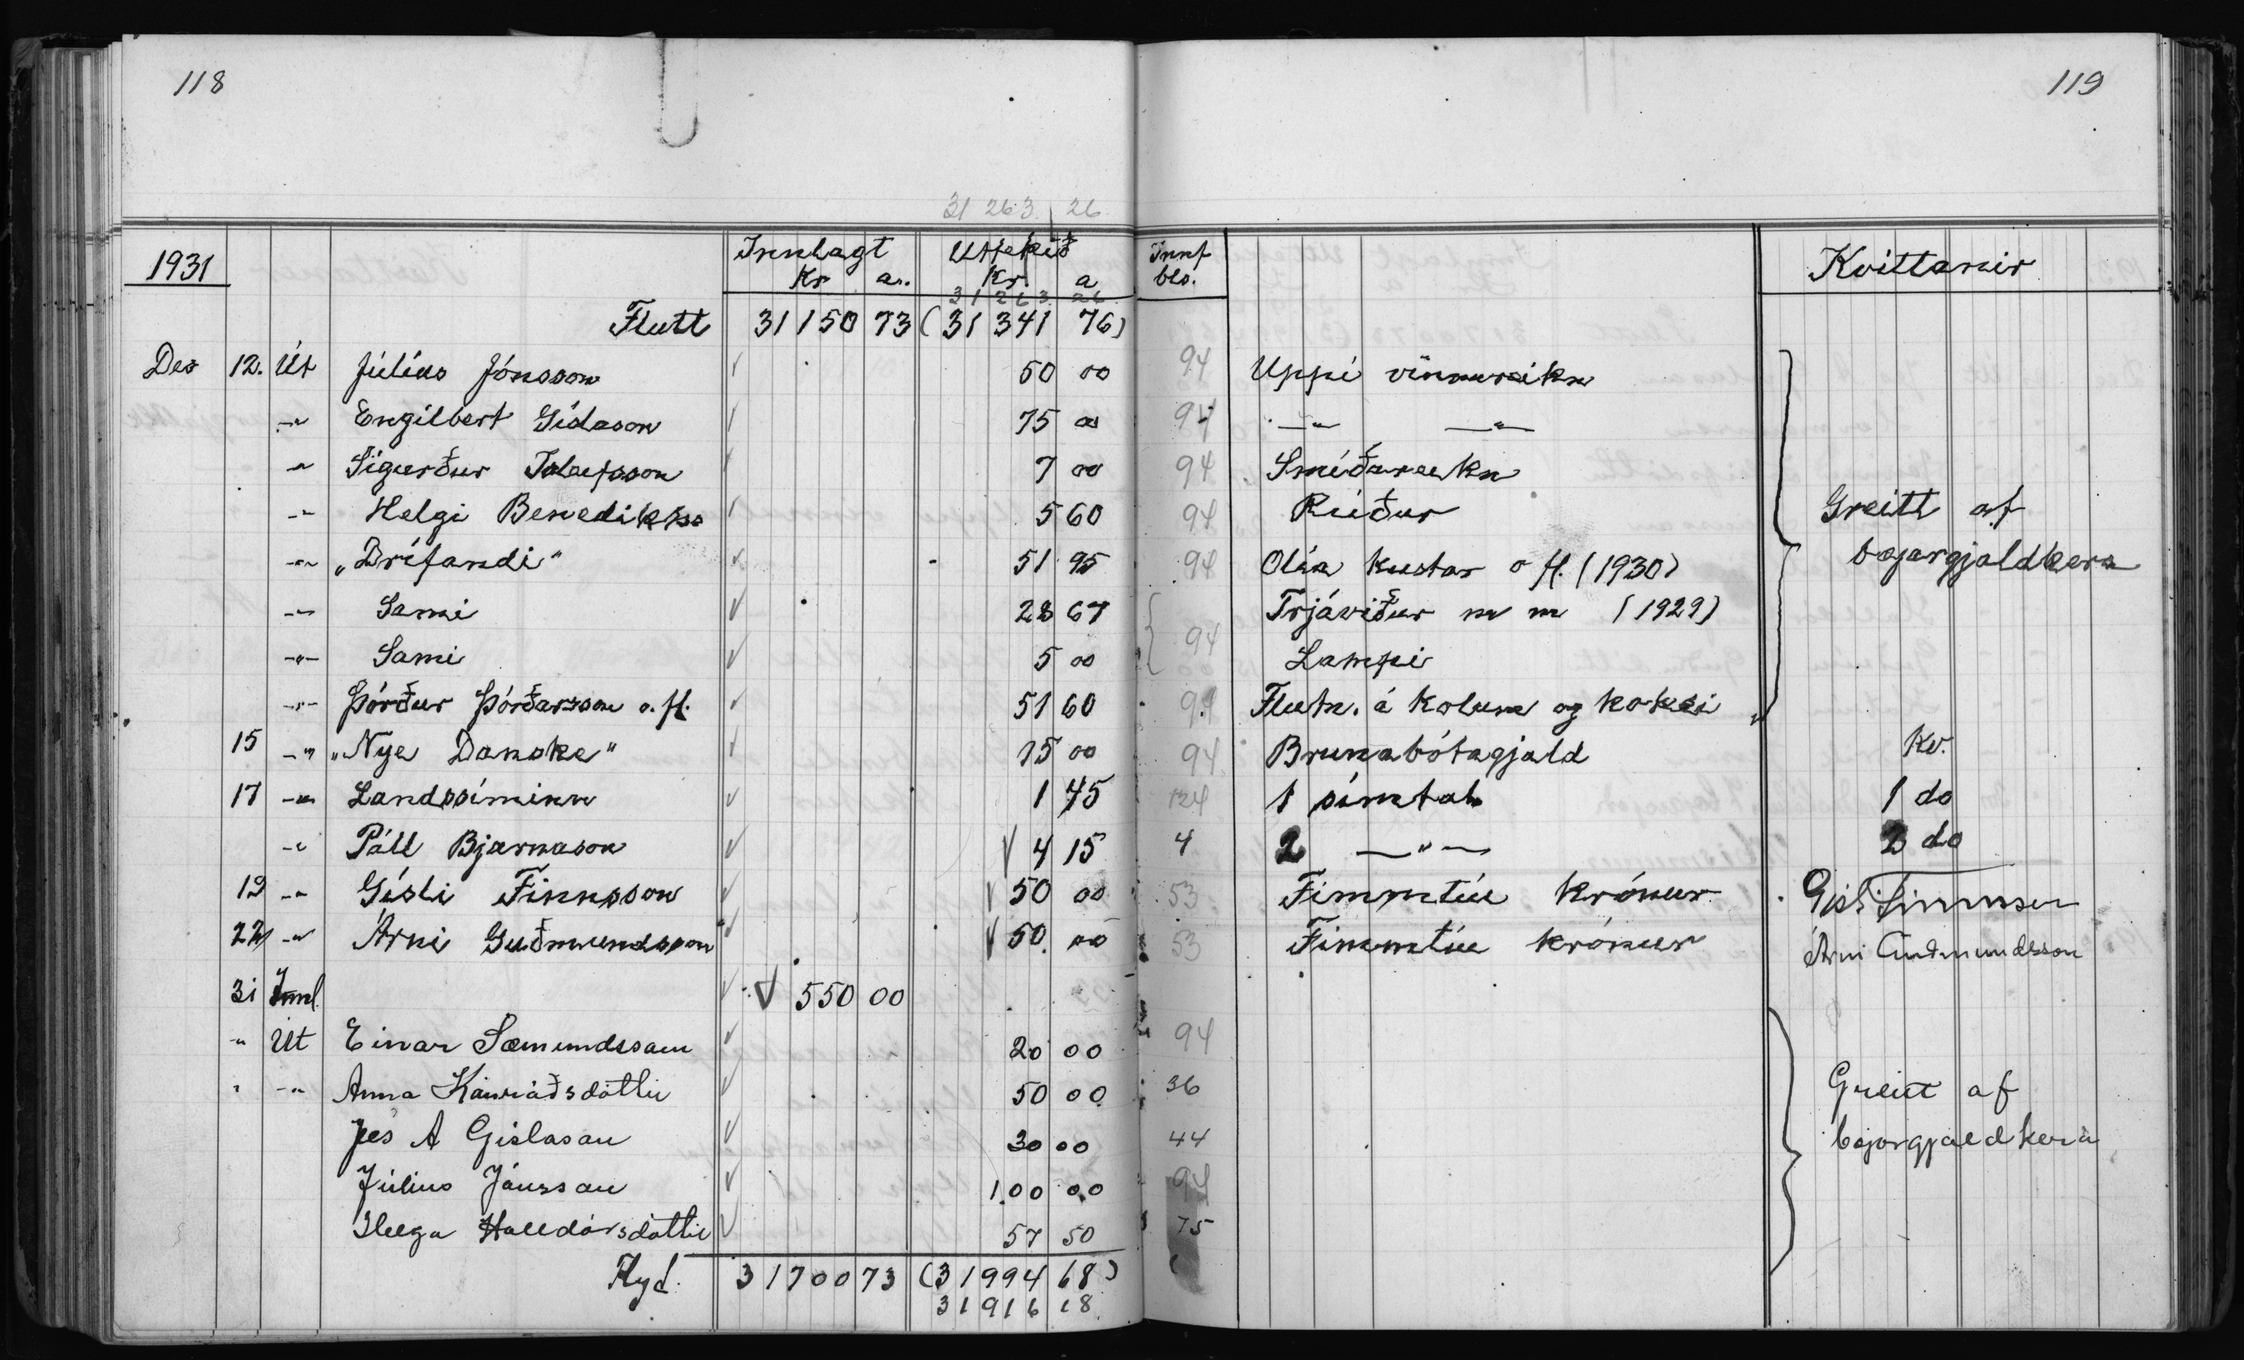 118
119
31 263 26
1931 Innlagt Úttekið Innf Kvittanir
Kr a. Kr a bls.
31263 26
Flutt 31150 73 (31341 76)
Des 12. Út Júlíus Jónsson 50 00 94 Uppí vinnureikn
-"- Engilbert Gíslason 75 00 94 -"- -"-
-"- Sigurður 7 00 94 Smíðareikn
-"- Helgi Benediktss 5 60 94 Rúður Greitt af
-"- „Drífandi" 51 95 94 Olía kústar o fl. (1930) bæjargjaldkera
-"- Sami 28 67 Trjáviður m m (1929)
-"- Sami 5 00 94 Lampi
-"- Þórður Þórðarsson o. fl. 51 60 94 Flutn. á kolum og koksi
15 -"- „Nye Danske" 75 00 94 Brunabótagjald Kv.
17 -"- Landssíminn 1 45 124 1 símtal 1 do
-"- Páll Bjarnason 4 15 4 2 -"- 2 do
19 -"- Gísli Finnsson 50 00 53 Fimmtíu krónur Gísli Finnsson
22 -"- Árni Guðmundsson 50 00 53 Fimmtíu krónur Árni Guðmundsson
31 Innl. 550 00
" Út Einar Sæmundsson 20 00 94
" -"- Anna Konráðsdóttir 50 00 36 Greitt af
Jes A Gíslason 30 00 44 bæjargjaldkera
Júlíus Jónsson 100 00 94
Helga Halldórsdóttir 57 50 75
Flyt. 31700 73 (31994 68)
31916 18